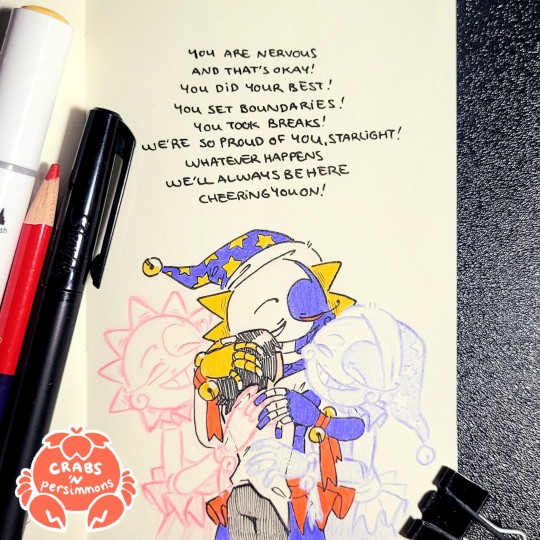 YOU ARE NERVOUS
AND THAT'S OKAY!
YOU DID YOUR BEST!
YOU SET BOUNDARIES!
YOU TOOK BREAKS!
WE'RE SO PROUD OF YOU, STARLIGHT!
WHATEVER HAPPENS
WE'LL ALWAYS BE HERE
CHEERING YOU ON!
CRABS
'N
Persimmons